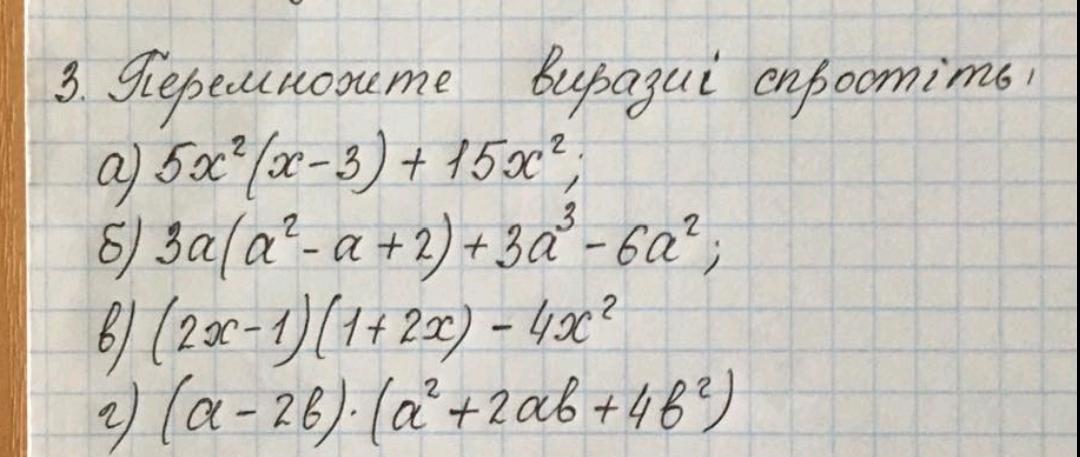 3. Перемножте виразиі спростіть,
а) 5x²(x-3) + 15x²;
б) 3a(a²-a+2)+3a³-6a²;
в) (2x-1)(1+2x) - 4x²
г) (a-2b)·(a²+2ab+4b²)